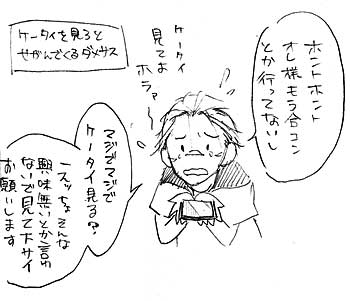 ケータイを見ろと
せがんでくるダメサス
ホントホント
オレ様モラ合コン
とか行ってないし
ケータイ
見てよ
ホラァ〜
マジでマジで
ケータイ見る?
一スッちょそんな
興味無いとか言わ
ないで見て下サイ
お願いします